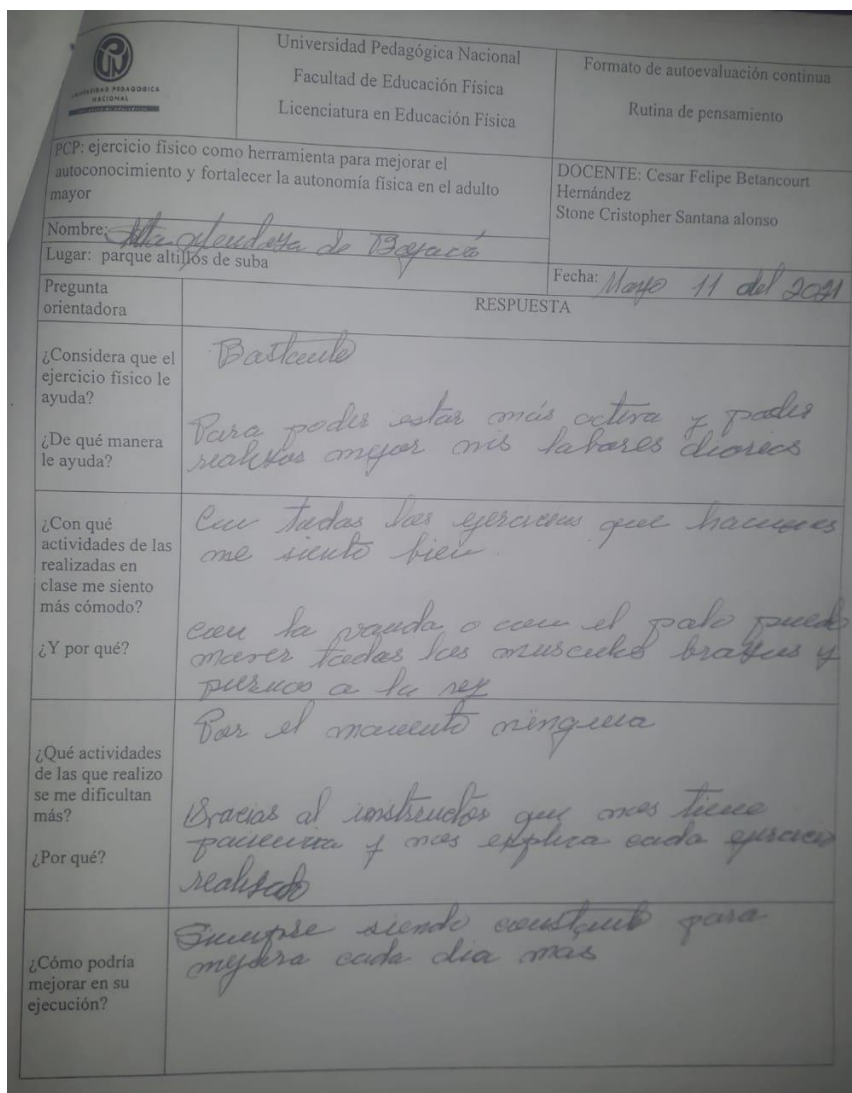 UNIVERSIDAD PEDAGOGICA
NACIONAL
Universidad Pedagógica Nacional
Facultad de Educación Física
Licenciatura en Educación Física
Formato de autoevaluación continua
Rutina de pensamiento
PCP: ejercicio físico como herramienta para mejorar el
autoconocimiento y fortalecer la autonomía física en el adulto
mayor
DOCENTE: Cesar Felipe Betancourt
Hernández
Stone Cristopher Santana alonso
Nombre: de
Lugar: parque altillos de suba
Fecha: Mayo 11 del 2021
Pregunta
orientadora
RESPUESTA
¿Considera que el
ejercicio físico le
ayuda?
¿De qué manera
le ayuda?
Bastante
Para poder estar más activa y poder
realizar mejor mis labores diarias
¿Con qué
actividades de las
realizadas en
clase me siento
más cómodo?
¿Y por qué?
Con todos los ejercicios que hacemos
me siento bien
con la vanda o con el palo puedo
mover todos los musculos brazos y
piernas a la vez
¿Qué actividades
de las que realizo
se me dificultan
más?
¿Por qué?
Por el momento ninguna
Gracias al instructor que nos tiene
paciencia y nos explica cada ejercicio
realizado
¿Cómo podría
mejorar en su
ejecución?
Siempre siendo constante para
mejora cada dia mas